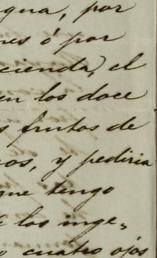 gua, por
nes ó por
cienda, el
en los doce
s frutos de
cos, y pediria
que tengo
e los inge-
o cuatro ojos